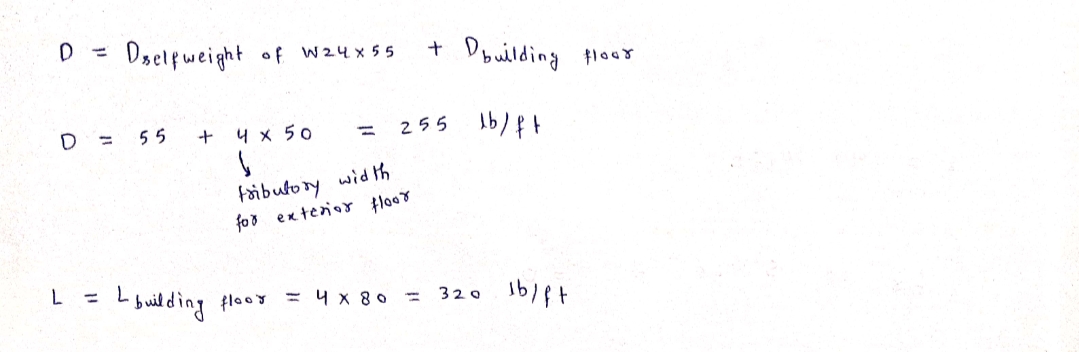 D = Dselfweight of W24x55 + Dbuilding floor
D = 55 + 4 x 50 = 255 lb/ft
↓
tributory width
for exterior floor
L = Lbuilding floor = 4 x 80 = 320 lb/ft